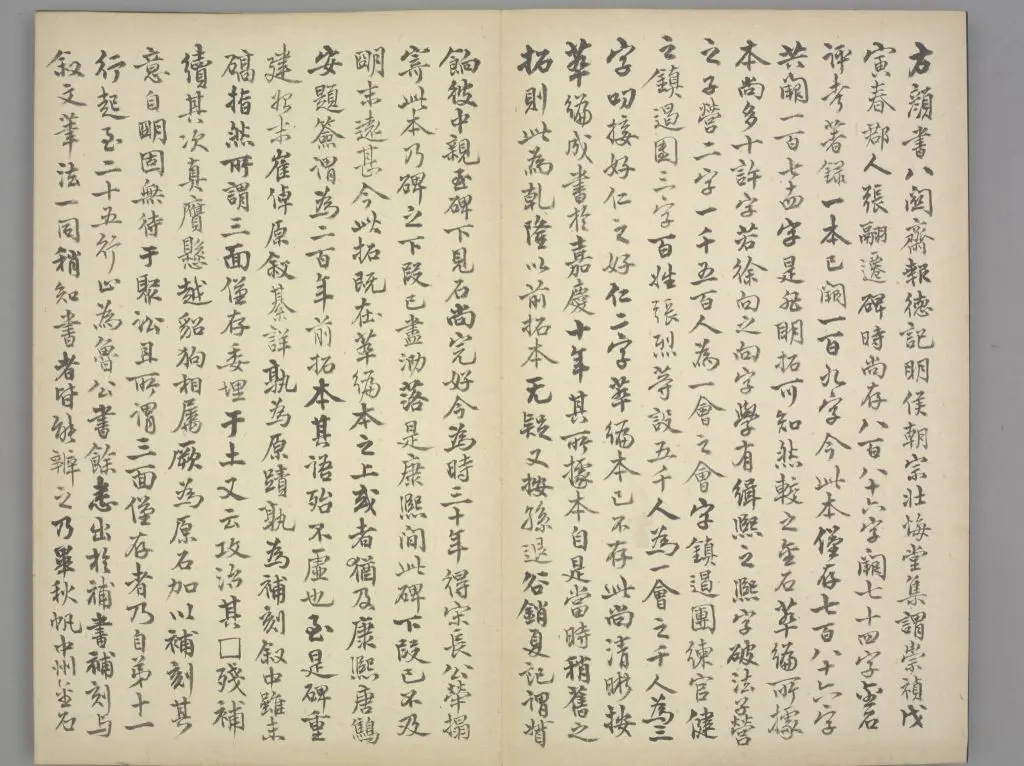 右顏書八關齋報德記明侯朝宗壯悔堂集謂崇禎戊
寅春鄰人張翮遷碑時尚存八百八十六字闕七十四字金石
評考著錄一本已闕一百九字今此本僅存七百八十六字
共闕一百七十四字是非明拓可知然較之金石萃編所據
本尚多十許字若徐向之向字學有緝熙之熙字破法子營
之子營二字一千五百人為一會之會字鎮遏團練官健
之鎮遏團三字百姓張烈等設五千人為一會之千人為三
字叨接好仁之好仁二字萃編本已不存此尚清晰按
萃編成書於嘉慶十年其所據本自是當時稍舊之
拓則此為乾隆以前拓本无疑又按孫退谷銷夏記謂婿
餉彼中親至碑下見石尚完好今為時三十年得宋長公犖搨
寄此本乃碑之下段已盡泐落是康熙間此碑下段已不及
明末遠甚今此拓既在萃編本之上或者猶及康熙唐鷦
安題簽謂為二百年前拓本其語殆不虛也至是碑重
建始末崔倬原敘綦詳孰為原蹟孰為補刻敘中雖未
礭指然所謂三面僅存委埋于土又云攻治其□殘補
續其次真贗懸越貂狗相屬厥為原石加以補刻其
意自明固無待于聚訟且所謂三面僅存者乃自第十一
行起至二十五行止為魯公書餘悉出於補書補刻与
敘文筆法一同稍知書者時能辨之乃畢秋帆中州金石